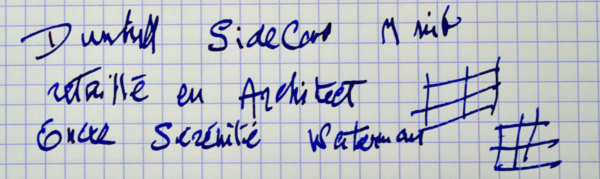 Dunhill SideCar M nib
retaillé en Architect
Encre Sérénité Waterman